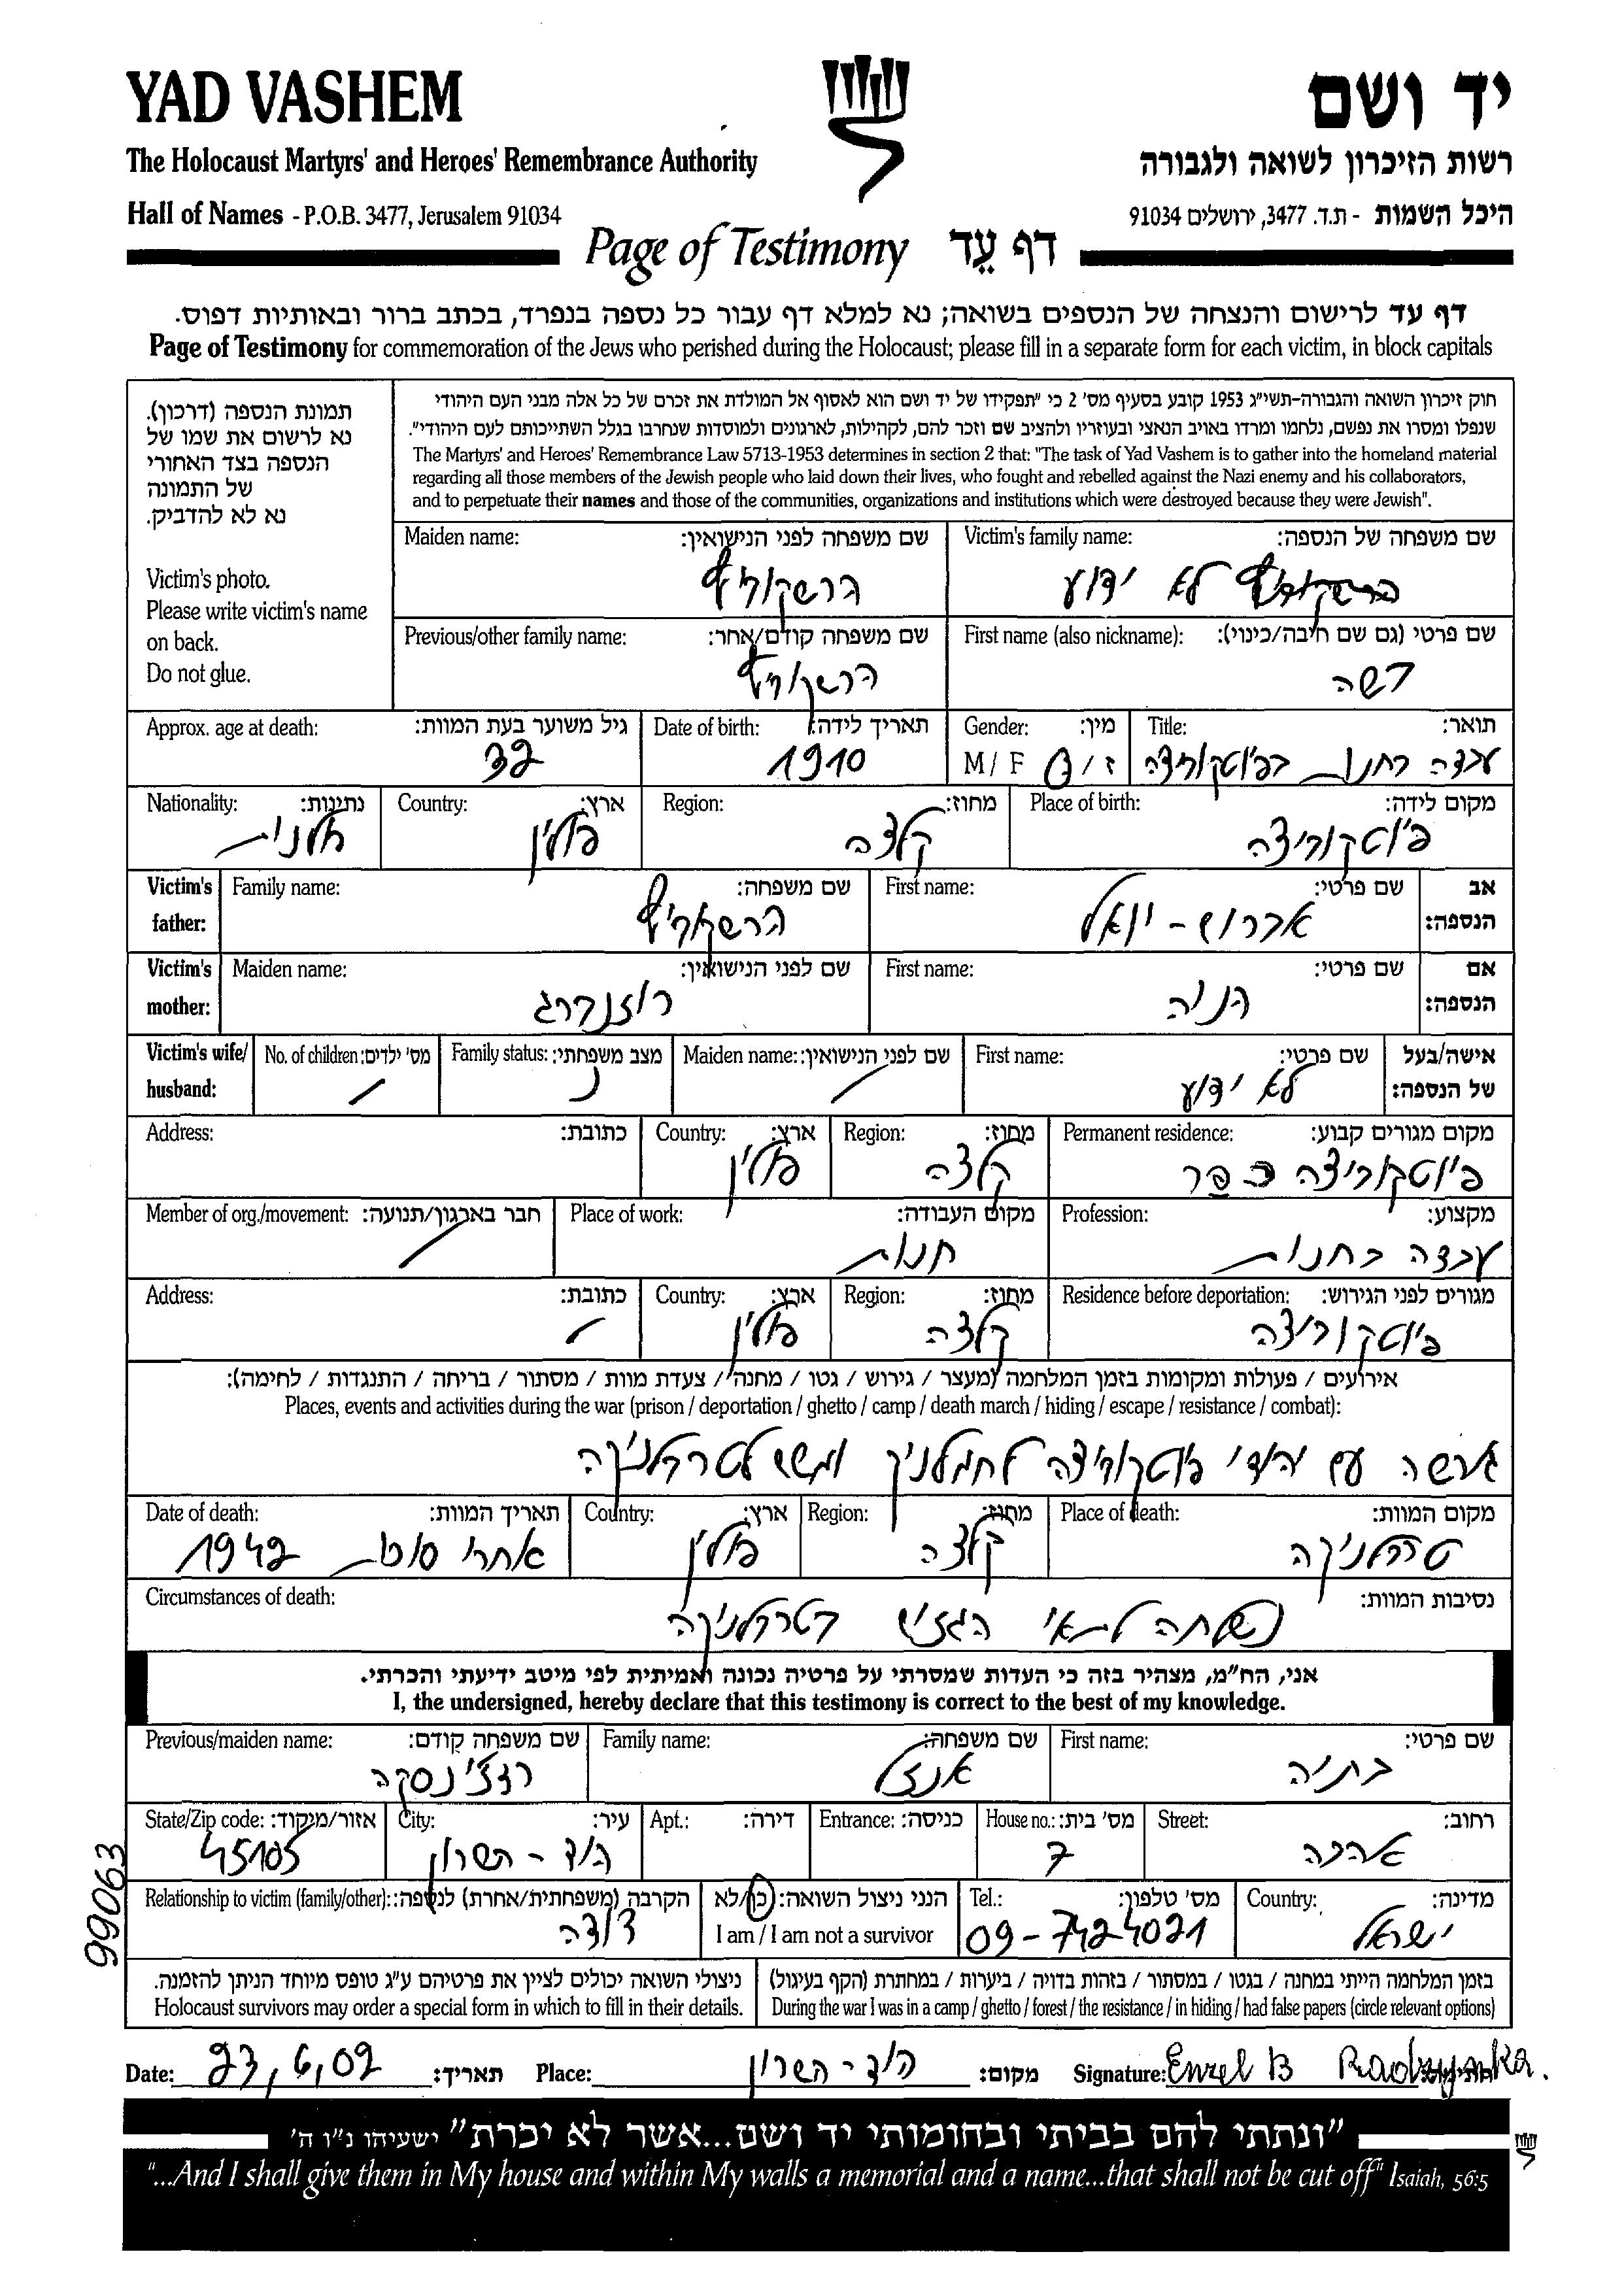 YAD VASHEM
יד ושם
The Holocaust Martyrs' and Heroes' Remembrance Authority
רשות הזיכרון לשואה ולגבורה
Hall of Names - P.O.B. 3477, Jerusalem 91034
היכל השמות - ת.ד. 3477, ירושלים 91034
Page of Testimony דף עֵד
דף עד לרישום והנצחה של הנספים בשואה; נא למלא דף עבור כל נספה בנפרד, בכתב ברור ובאותיות דפוס.
Page of Testimony for commemoration of the Jews who perished during the Holocaust; please fill in a separate form for each victim, in block capitals
תמונת הנספה (דרכון).
נא לרשום את שמו של
הנספה בצד האחורי
של התמונה
נא לא להדביק.
Victim's photo.
Please write victim's name
on back.
Do not glue.
חוק זיכרון השואה והגבורה-תשי"ג 1953 קובע בסעיף מס' 2 כי "תפקידו של יד ושם הוא לאסוף אל המולדת את זכרם של כל אלה מבני העם היהודי
שנפלו ומסרו את נפשם, נלחמו ומרדו באויב הנאצי ובעוזריו ולהציב שם וזכר להם, לקהילות, לארגונים ולמוסדות שנחרבו בגלל השתייכותם לעם היהודי".
The Martyrs' and Heroes' Remembrance Law 5713-1953 determines in section 2 that: "The task of Yad Vashem is to gather into the homeland material
regarding all those members of the Jewish people who laid down their lives, who fought and rebelled against the Nazi enemy and his collaborators,
and to perpetuate their names and those of the communities, organizations and institutions which were destroyed because they were Jewish".
Victim's family name: שם משפחה של הנספה:
לא ידוע
Maiden name: שם משפחה לפני הנישואין:
הרשקוריץ
First name (also nickname): שם פרטי (גם שם חיבה/כינוי):
דשה
Previous/other family name: שם משפחה קודם/אחר:
הרשקוביץ
Title: תואר:
עבדה בחנות בפיוטקוביצה
Gender: מין:
M / F ז /
Date of birth: תאריך לידה:
1910
Approx. age at death: גיל משוער בעת המוות:
32
Place of birth: מקום לידה:
פיוטקוביצה
Region: מחוז:
קלצה
Country: ארץ:
פולין
Nationality: נתינות:
Victim's father: אב הנספה:
First name: שם פרטי:
יואל
Family name: שם משפחה:
הרשקוביץ
Victim's mother: אם הנספה:
First name: שם פרטי:
הניה
Maiden name: שם לפני הנישואין:
רוזנברג
Victim's wife/husband: אישה/בעל של הנספה:
First name: שם פרטי:
לא ידוע
Maiden name: שם לפני הנישואין:
Family status: מצב משפחתי:
נ
No. of children: מס' ילדים:
Permanent residence: מקום מגורים קבוע:
פיוטקוביצה כפר
Region: מחוז:
קלצה
Country: ארץ:
פולין
Address: כתובת:
Profession: מקצוע:
עבדה בחנות
Place of work: מקום העבודה:
חנות
Member of org./movement: חבר בארגון/תנועה:
Residence before deportation: מגורים לפני הגירוש:
פיוטקוביצה
Region: מחוז:
קלצה
Country: ארץ:
פולין
Address: כתובת:
אירועים / פעולות ומקומות בזמן המלחמה (מעצר / גירוש / גטו / מחנה / צעדת מוות / מסתור / בריחה / התנגדות / לחימה):
Places, events and activities during the war (prison / deportation / ghetto / camp / death march / hiding / escape / resistance / combat):
גורשה עם יהודי פיוטקוביצה לחמלניק ומשם לטרבלינקה
Place of death: מקום המוות:
טרבלינקה
Region: מחוז:
קלצה
Country: ארץ:
פולין
Date of death: תאריך המוות:
אחרי סוכות 1942
Circumstances of death: נסיבות המוות:
נשלחה לתאי הגזים בטרבלינקה
אני, הח"מ, מצהיר בזה כי העדות שמסרתי על פרטיה נכונה ואמיתית לפי מיטב ידיעתי והכרתי.
I, the undersigned, hereby declare that this testimony is correct to the best of my knowledge.
First name: שם פרטי:
בתיה
Family name: שם משפחה:
אנזל
Previous/maiden name: שם משפחה קודם:
רדז'ינסקה
Street: רחוב:
House no.: מס' בית:
7
Entrance: כניסה:
Apt.: דירה:
City: עיר:
הוד - השרון
State/Zip code: אזור/מיקוד:
45105
Country: מדינה:
ישראל
Tel.: מס' טלפון:
09-7424021
הנני ניצול השואה: כן/לא
I am / I am not a survivor
Relationship to victim (family/other): הקרבה (משפחתית/אחרת) לנספה:
דודה
בזמן המלחמה הייתי במחנה / בגטו / במסתור / בזהות בדויה / ביערות / במחתרת (הקף בעיגול)
During the war I was in a camp / ghetto / forest / the resistance / in hiding / had false papers (circle relevant options)
ניצולי השואה יכולים לציין את פרטיהם ע"ג טופס מיוחד הניתן להזמנה.
Holocaust survivors may order a special form in which to fill in their details.
99063
Date: 23,6,02 תאריך: Place: הוד-השרון מקום: Signature: Enzel B חתימה:
"ונתתי להם בביתי ובחומותי יד ושם...אשר לא יכרת" ישעיהו נ"ו ה'
"...And I shall give them in My house and within My walls a memorial and a name...that shall not be cut off" Isaiah, 56:5